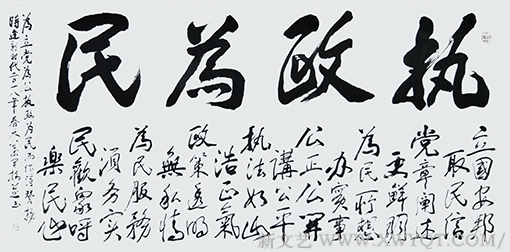 执政为民
立国安邦
取民信
党章阐述
更鲜明
为民所想
办实事
公正公开
讲公平
执法如山
浩正气
政策透明
无私情
为民服务
须务实
民欢众呼
乐民心
为立党为公执政为民而作
新文艺 WWW.XWYQT.COM